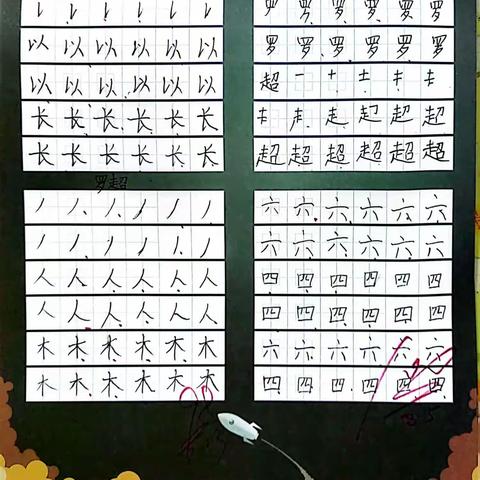 以 以 以 以 以 以
以 以 以 以 以 以
长 长 长 长 长 长
长 长 长 长 长 长
罗 罗 罗 罗 罗 罗
超 一 十 土
走
超 超 超 超 超 超
罗超
人 人 人 人 人 人
人 人 人 人 人 人
木 木 木 木 木 木
木 木 木 木 木 木
六 六 六 六 六 六
六 六 六 六 六 六
四 四 四 四 四 四
四 四 四 四 四 四
六 六 六 六 六 六
四 四 四 四 四 四